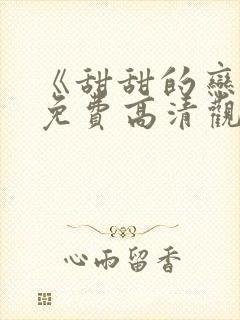 《甜甜的戀
免費高清觀
心雨留香